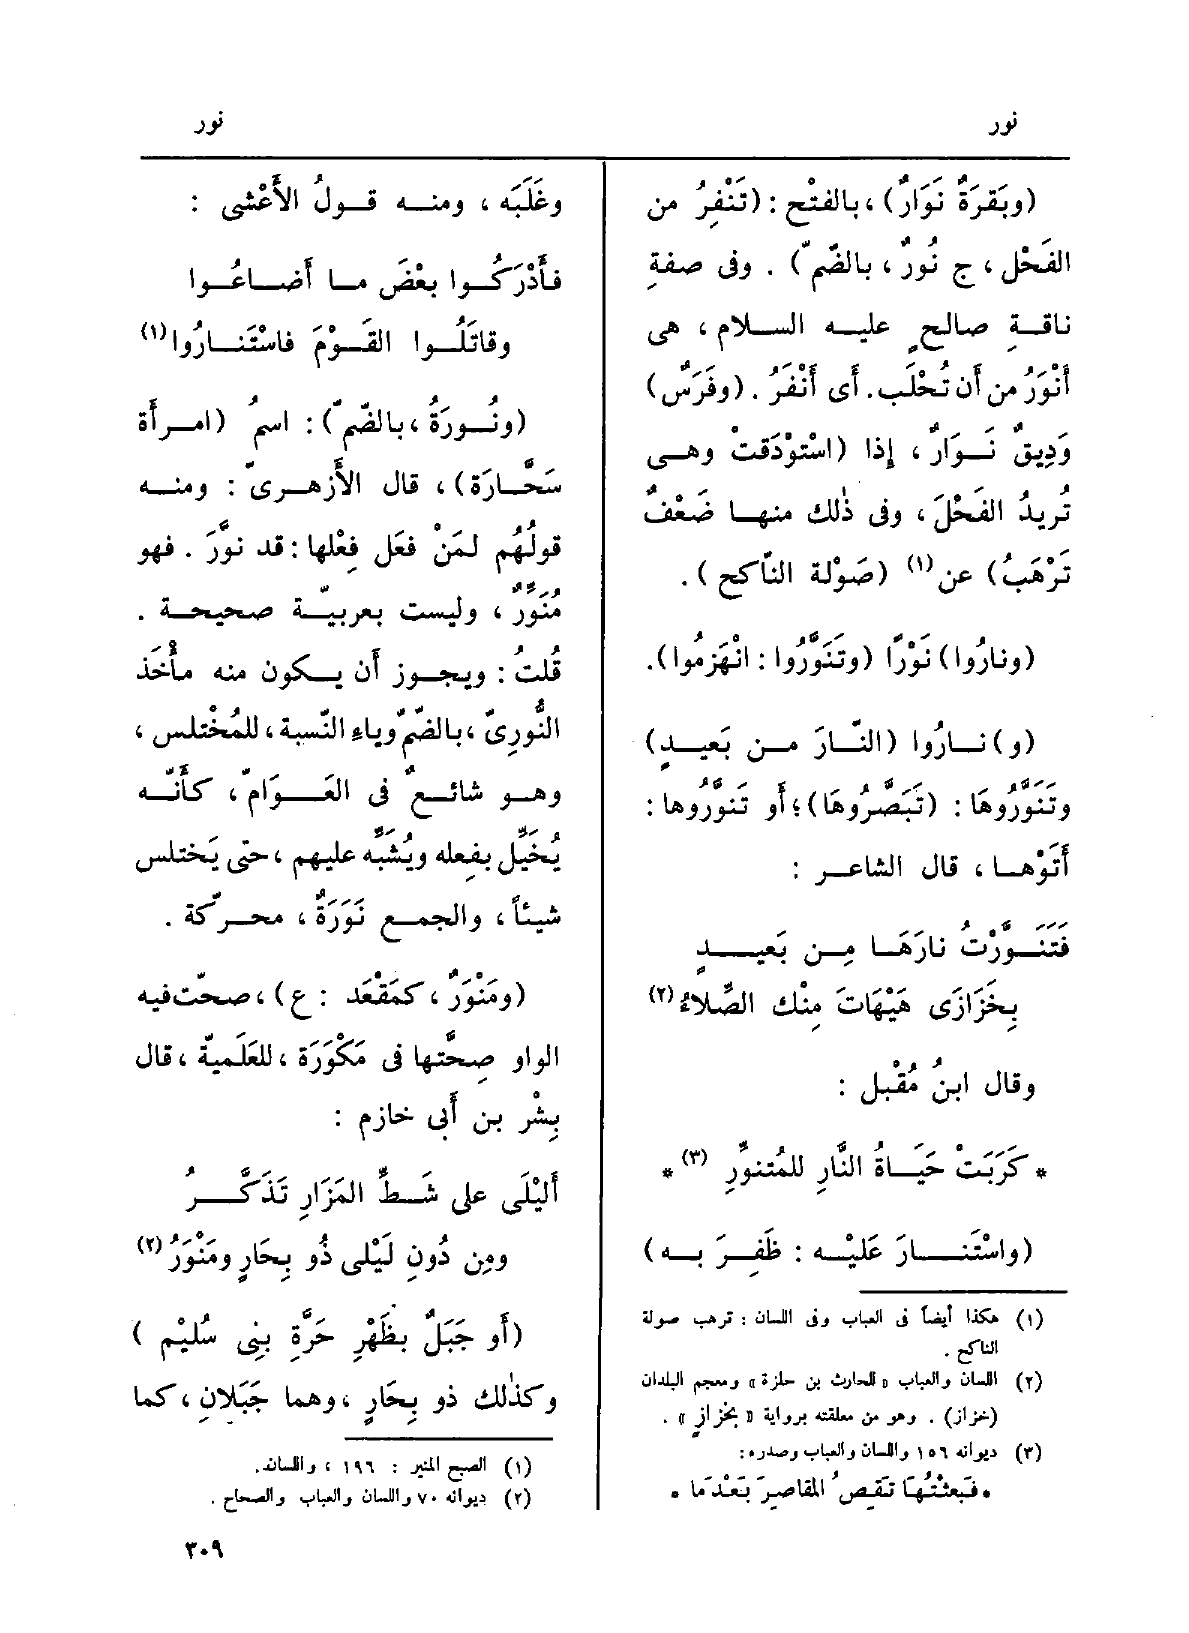 نور
نور
(وبَقرَةٌ نَوَارٌ)، بالفتْح: (تَنْفِرُ من
الفَحْل، ج نُورٌ، بالضّمّ). وفى صفةِ
ناقةِ صالحٍ عليه السلام، هى
أَنْوَرُ من أن تُحْلَب. أى أَنْفَرُ. (وفَرَسٌ)
وَدِيقٌ نَوارٌ، إذا (اسْتَوْدَقتْ وهى
تُريدُ الفَحْلَ، وفى ذٰلك منها ضَعْفٌ
تَرْهَبُ) عن (١) (صَوْلة النّاكح).
(ونارُوا) نَوْرًا (وتَنَوَّرُوا: انْهزمُوا).
(و) نارُوا (النّارَ من بَعيدٍ)
وتَنَوَّرُوهَا: (تَبَصَّرُوهَا)؛ أو تَنوَّرُوها:
أَتَوْها، قال الشاعر:
فَتَنَوَّرْتُ نارَهَا مِن بَعيدٍ
بِخَزَازَى هَيْهَاتَ مِنْك الصِّلاءُ (٢)
وقال ابنُ مُقْبل:
* كَرَبَتْ حَيَاةُ النَّارِ للمُتنوِّرِ (٣) *
(واسْتَنارَ عَليْه: ظَفِرَ به)
(١) هكذا أيضاً فى العباب وفى اللسان: ترهب صولة
الناكح.
(٢) اللسان والعباب «للحارث بن حلزة» ومعجم البلدان
(خزاز). وهو من معلقته برواية «بخزازٍ».
(٣) ديوانه ١٥٦ واللسان والعباب وصدره:
* فبَعثْتُهَا تقِصُ المقاصِرَ بَعْدَمَا *
وغَلَبَه، ومنه قولُ الأَعْشى:
فأَدْرَكُوا بعْضَ ما أَضاعُوا
وقاتَلُوا القَوْمَ فاسْتَنارُوا (١)
(ونُورَةُ، بالضّمّ): اسمُ (امرأة
سَحَّارَة)، قال الأَزهرىّ: ومنه
قولُهُم لمَنْ فعَل فِعْلها: قد نوَّرَ. فهو
مُنَوِّرٌ، وليست بعربيّة صحيحة.
قُلتُ: ويجوز أن يكون منه مأْخَذ
النُّورِىّ، بالضّمّ وياءِ النّسبة، للمُخْتلس،
وهو شائعٌ فى العَوامّ، كأَنّه
يُخَيِّل بفِعله ويُشَبِّه عليهم، حتى يَختلس
شيئاً، والجمع نَوَرَةٌ، محرّكة.
(ومَنْوَرٌ، كمَقْعَد: ع)، صحّت فيه
الواو صِحَّتها فى مَكْوَرَة، للعَلَميّة، قال
بِشْر بن أبى خازم:
أَليْلَى على شَطِّ المَزَارِ تَذَكَّرُ
ومِن دُونِ لَيْلى ذُو بِحَارٍ ومَنْوَرُ (٢)
(أو جَبَلٌ بظَهْرِ حَرَّةِ بنى سُليْم)
وكذٰلك ذو بِحَارٍ، وهما جَبَلانِ، كما
(١) الصبح المنير: ١٩٦، واللسان.
(٢) ديوانه ٧٠ واللسان والعباب والصحاح.
٣٠٩